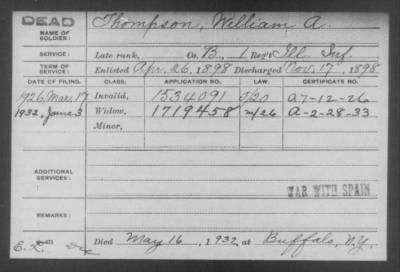 DEAD
NAME OF SOLDIER: Thompson, William A.
SERVICE: Late rank, Co. B, 1 Reg't Ill. Inf.
TERM OF SERVICE: Enlisted Apr. 26, 1898 Discharged Nov. 17, 1898
DATE OF FILING. CLASS. APPLICATION NO. CERTIFICATE NO.
1926, Mar. 17 Invalid, 1534091 A-7-12-26
1932, June 3 Widow, 1719458 A-2-28-33
Minor,
ADDITIONAL SERVICES:
WAR WITH SPAIN
REMARKS:
Died May 16, 1932, at Buffalo, N.Y.